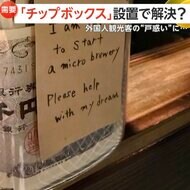 需要
「チップボックス」設置で解決？
外国人観光客の“戸惑い”に
I am
to Start
a micro brewery
Please help
with my dream